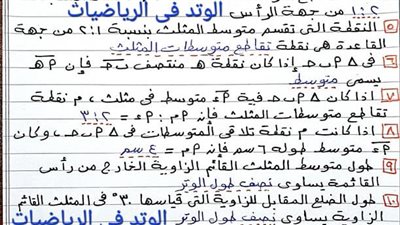 ٢:١ من جهة الرأس الوتد فى الرياضيات
٥ النقطة التى تقسم متوسط المثلث بنسبة ٢:١ من جهة
القاعدة هى نقطة تقاطع متوسطات المثلث
٦ فى Δ ٢ب حـ إذا كان نقطة هـ منتصف ب حـ فإن ٢هـ
يسمى متوسط
٧ اذا كان Δ ٢ب حـ فيه ٢ء متوسط فى مثلث ، م نقطة
تقاطع متوسطات المثلث فإن ٢م : ٢ء = ٣:٢
٨ اذا كانت م نقطة تلاقى المتوسطات فى Δ ٢ب حـ وكان
٢ء متوسط طوله ٦ سم فإن ٢م = ٤ سم
٩ طول متوسط المثلث القائم الزاوية الخارج من رأس
القائمة يساوى نصف طول الوتر
١٠ طول الضلع المقابل للزاوية التى قياسها ٣٠° فى المثلث القائم
الزاوية يساوى نصف طول الوتر الوتد فى الرياضيات